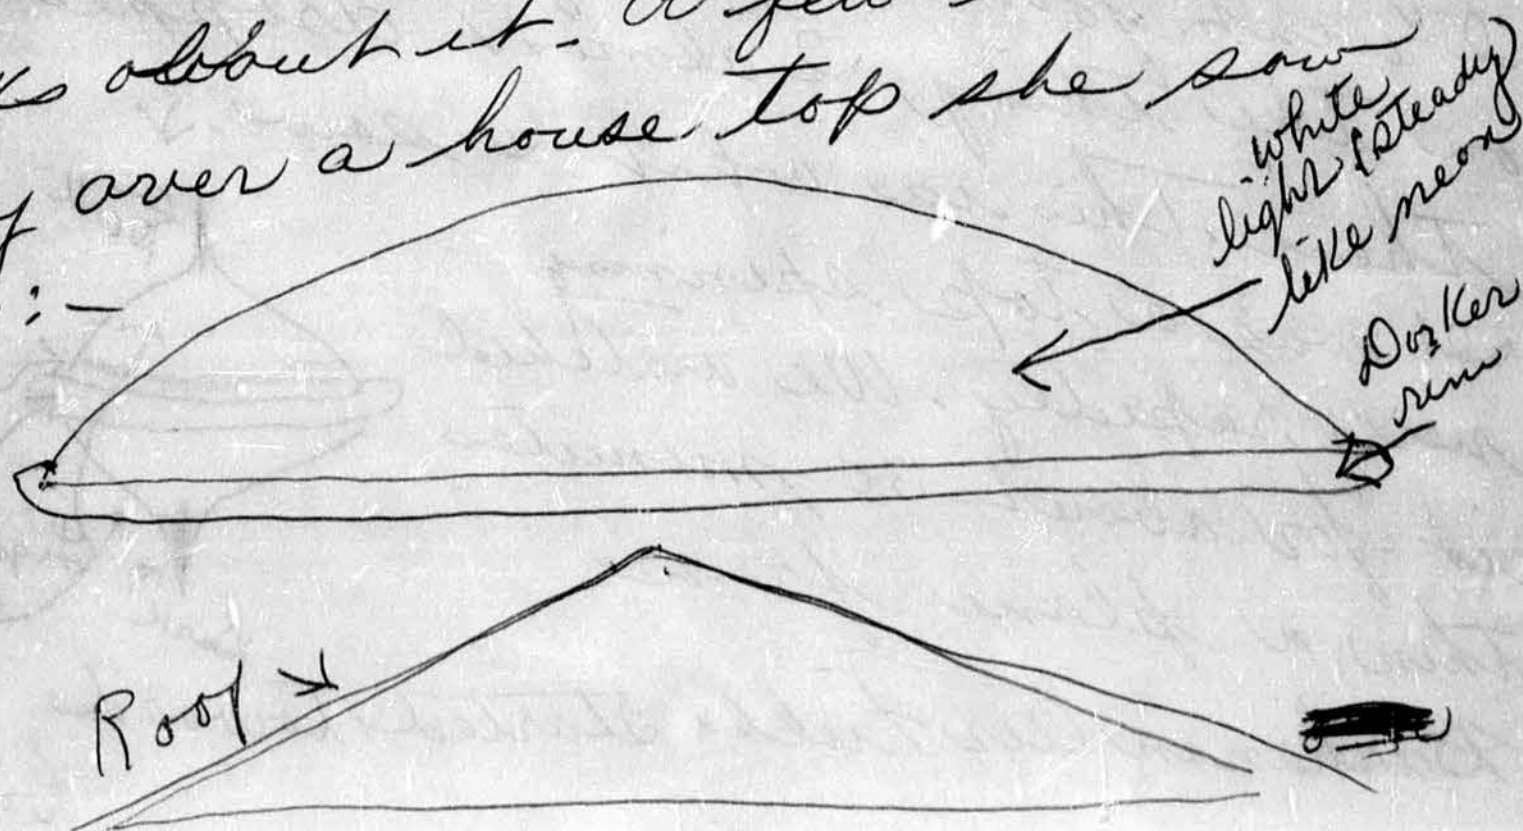 about it. A few
over a house top she saw
:-
white
light (steady)
like neon
Darker
rim
Roof